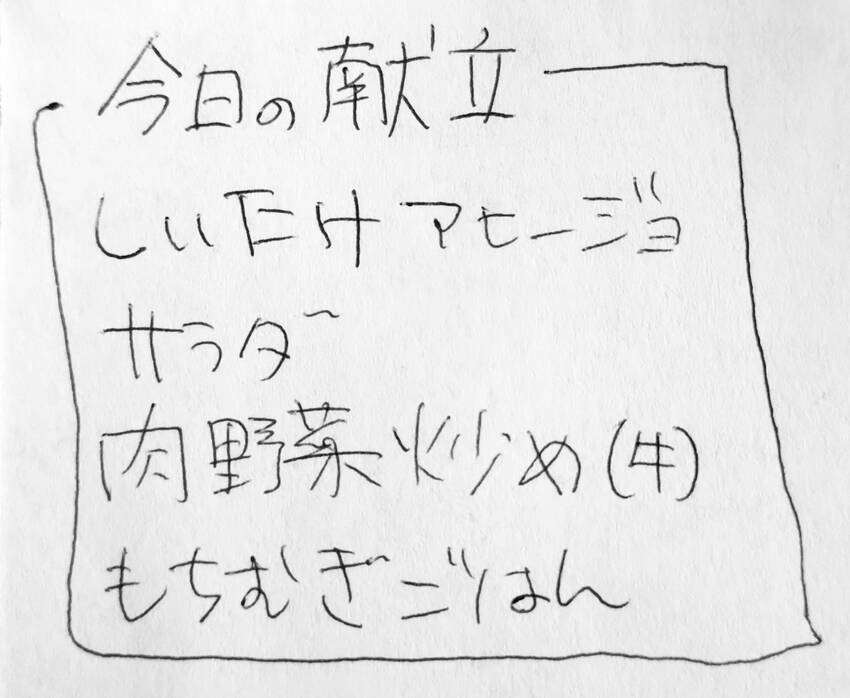 今日の献立
しいたけアヒージョ
サラダ
肉野菜炒め(牛)
もちむぎごはん